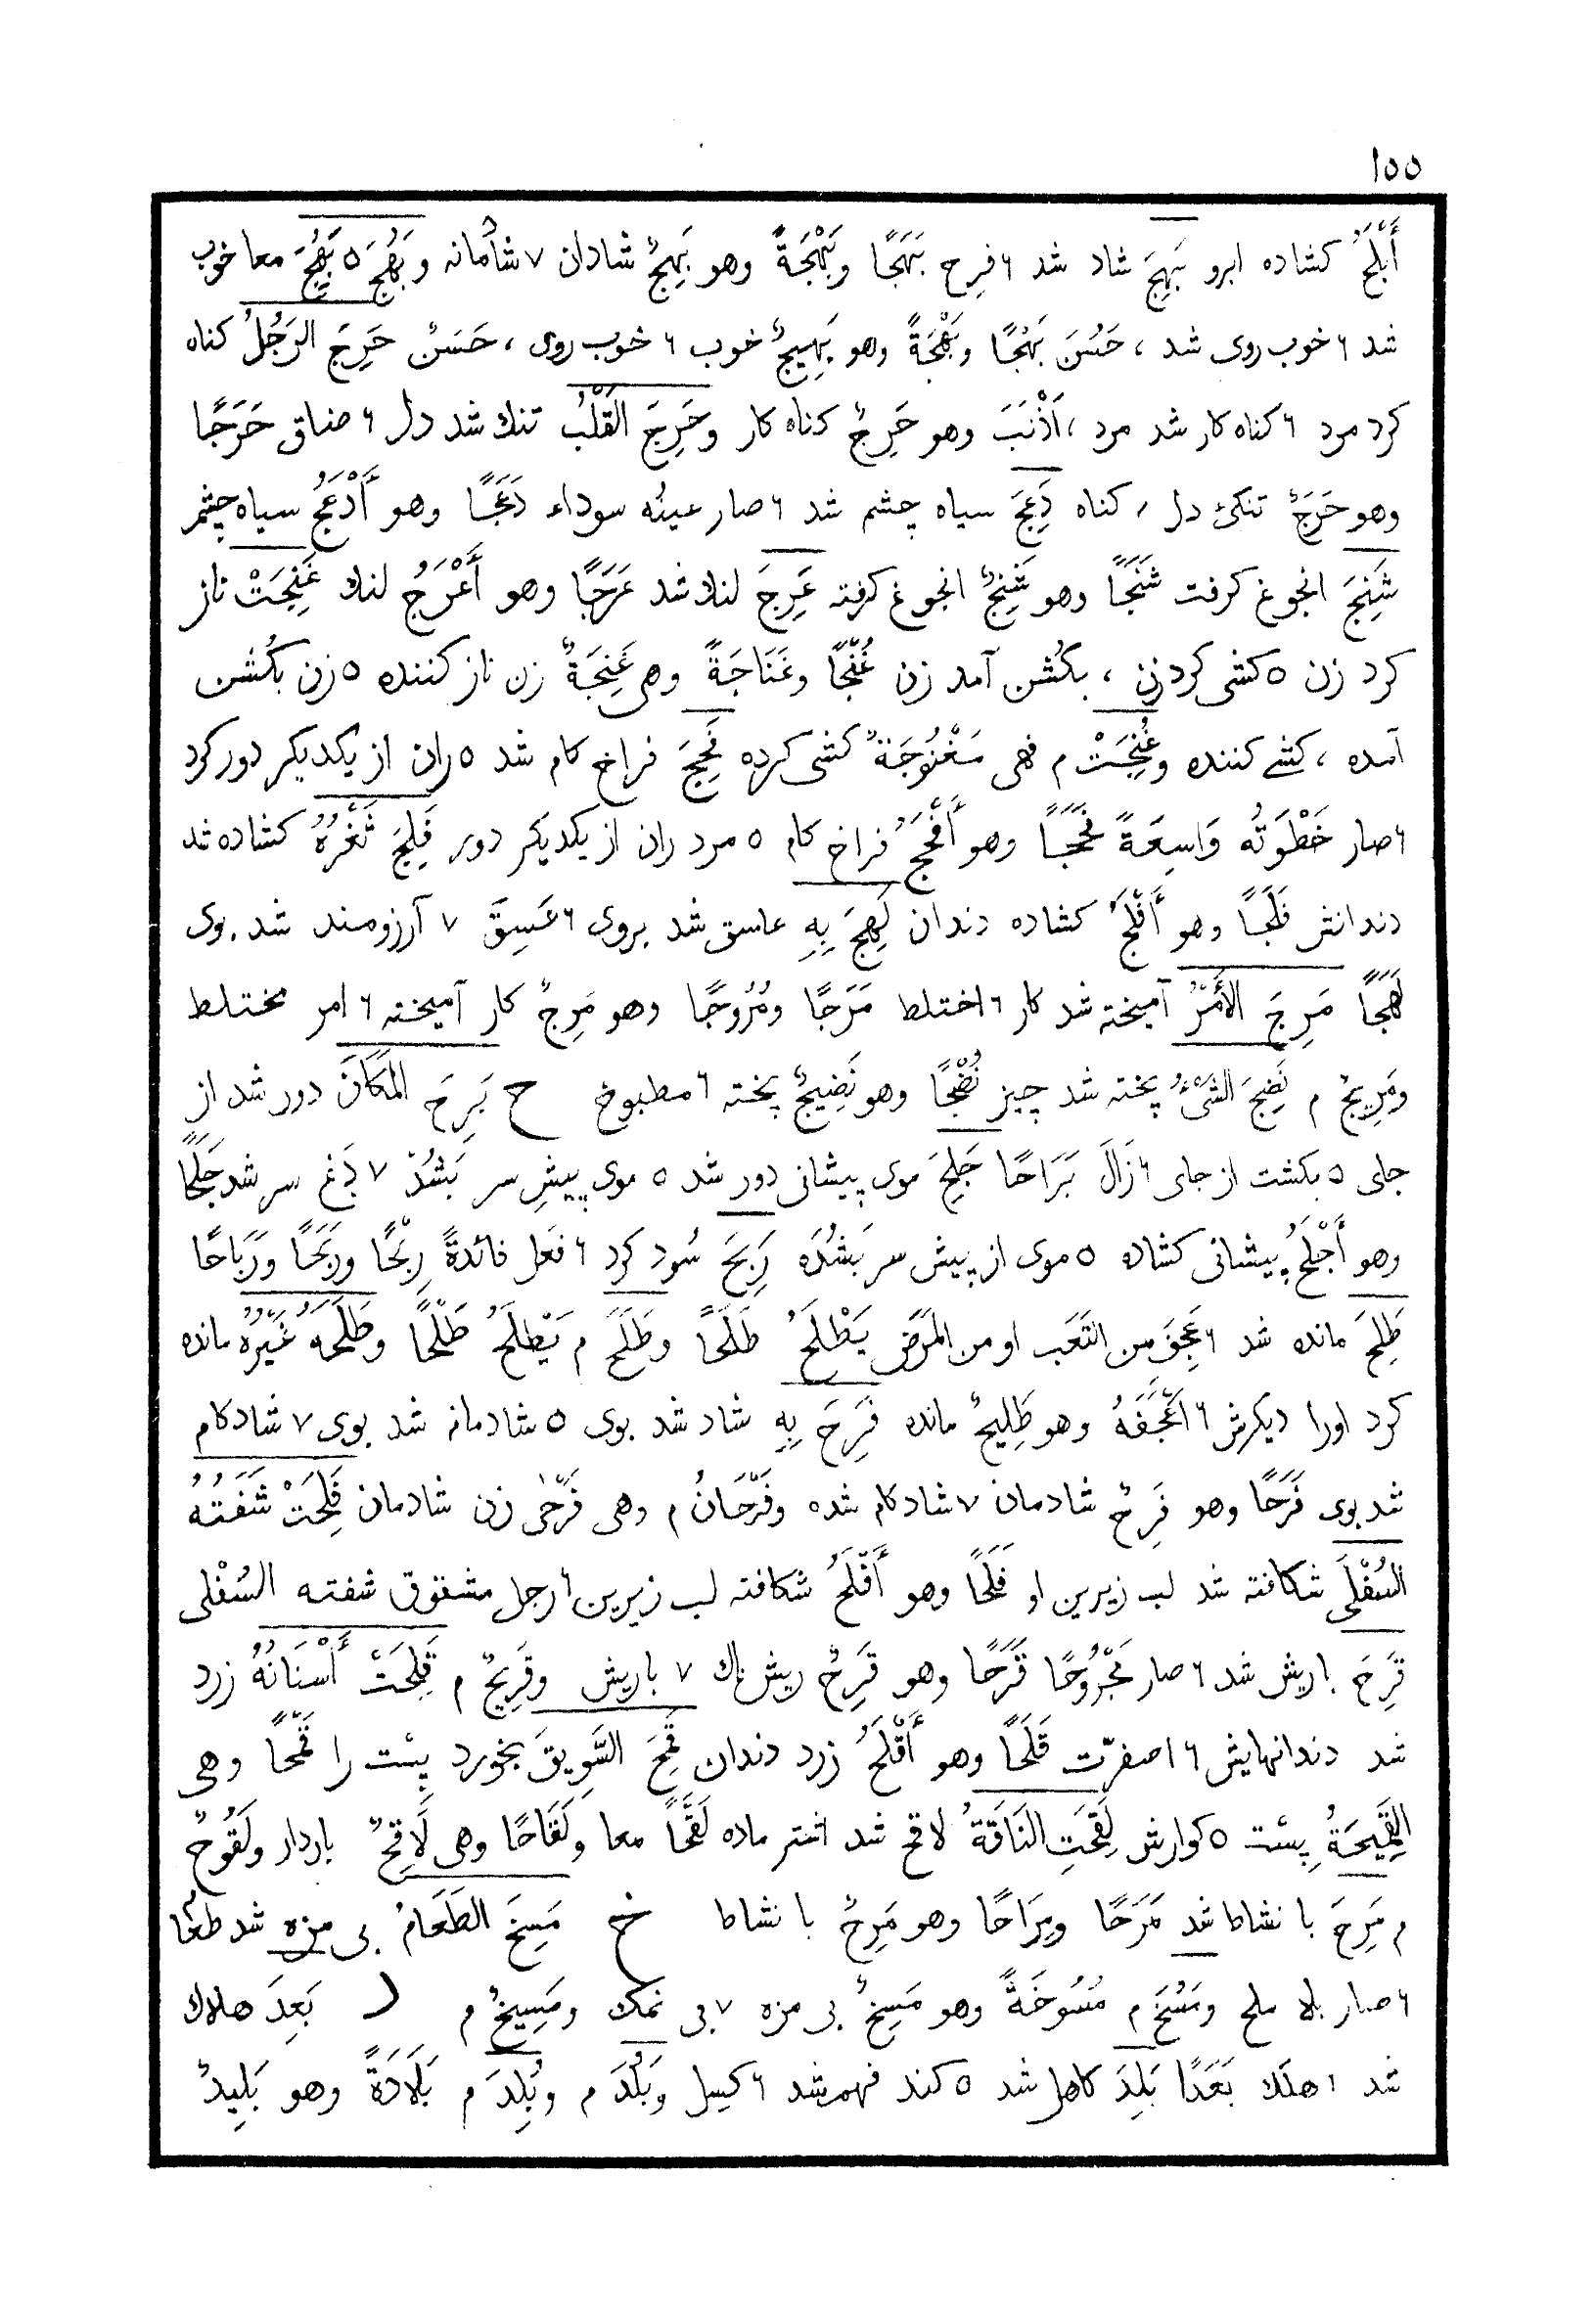 ١٥٥
أَبْلَجُ كشاده ابرو بَهِجَ شاد شد ٦ فرِح بَهَجًا وبَهْجَةً وهو بَهِجٌ شادان ٧ شاذمانه وبَهُجَ ٥ بَهِجَ معا خوب
شد ٦ خوب روى شد ، حَسُنَ بَهْجًا وبَهْجَةً وهو بَهِيجٌ خوب ٦ خوب روى ، حَسَنٌ حَرِجَ الرَجُلُ كناه
كرد مرد ٦ كناه كار شد مرد ، أَذْنَبَ وهو حَرِجٌ كناه كار وحَرِجَ القَلْبُ تنك شد دل ٦ ضاق حَرَجًا
وهو حَرَجٌ تنكئ دل ، كناه دَعِجَ سياه چشم شد ٦ صار عينُه سوداء دَعَجًا وهو أَدْعَجُ سياه چشم
شَنِجَ انجوغ كرفت شَنَجًا وهو شَنِجٌ انجوغ كرفته عَرِجَ لنك شد عَرَجًا وهو أَعْرَجُ لنك غَنِجَتْ ناز
كرد زن ٥ كشى كرد زن ، بكُشن آمد زن غُنْجًا وغَنَاجَةً وهى غَنِجَةٌ زن ناز كننده ٥ زن بكُشن
آمده ، كشے كننده وغُنِجَتْ م فهى مَغْنُوجَةٌ كشى كرده فَحِجَ فراخ كام شد ٥ ران از يكديكر دور كرد
٦ صار خَطْوَتُه وَاسِعَةً فَحَجًا وهو أَفْحَجُ فراخ كام ٥ مرد ران از يكديكر دور فَلِجَ ثَغْرُهُ كشاده شد
دندانش فَلَجًا وهو أَفْلَجُ كشاده دندان لَهِجَ بِهِ عاسق شد بروى ٦ عَسِقَ ٧ آرزومند شد بوى
لَهَجًا مَرِجَ الأَمْرُ آميخته شد كار ٦ اختلط مَرَجًا ومُرُوجًا وهو مَرِجٌ كار آميخته ٦ امر مختلط
ومَرِيجٌ م نَضِجَ الشَىْءُ پخته شد چيز نُضْجًا وهو نَضِيجٌ پخته ٦ مطبوخ ح بَرِحَ المَكَانَ دور شد از
جاى ٥ بكشت از جاى ٦ زَالَ بَرَاحًا جَلِحَ موى پيشانى دور شد ٥ موى پيشِ سر بَشُدْ ٧ دَغ سر شد جَلَحًا
وهو أَجْلَحُ پيشانى كشاده ٥ موى از پيش سر بَشُدَه رَبِحَ سُود كرد ٦ فعَل فائدةً رِبْحًا ورَبَحًا ورَبَاحًا
طَلِحَ مانده شد ٦ عَجِفَ من التَعَب او من المَرَض يَطْلَحُ طَلَحًا وطَلَحَ م يَطْلَحُ طَلْحًا وطَلَحَهُ غَيْرُهُ مانده
كرد اورا ديكرش ٦ أَعْجَفَهُ وهو طَلِيحٌ مانده فَرِحَ بِهِ شاد شد بوى ٥ شادمانه شد بوى ٧ شادكام
شد بوى فَرَحًا وهو فَرِحٌ شادمان ٧ شادكام شده وفَرْحَانُ م وهى فَرْحٰى زن شادمان فَلِحَتْ شَفَتُهُ
السُفْلَى شكافته شد لب زيرين او فَلَحًا وهو أَفْلَحُ شكافته لب زيرين ٦ رجل مشقوق شفته السُفْلى
قَرِحَ باريش شد ٦ صار مَجْرُوحًا قَرَحًا وهو قَرِحٌ ريش ناك ٧ باريش وقَرِيحٌ م قَلِحَتْ أَسْنَانُهُ زرد
شد دندانهايش ٦ اصفرّت قَلَحًا وهو أَقْلَحُ زرد دندان قَمِحَ السَّوِيقَ بخورد پِسْت را قَمْحًا وهى
القَمِيحَةُ پِسْت ٥ كوارش لَقِحَتِ النَاقَةُ لاقح شد اشتر ماده لَقْحًا معا ولَقَاحًا وهى لَاقِحٌ باردار ولَقُوحٌ
م مَرِحَ با نشاط شد مَرَحًا ومِرَاحًا وهو مَرِحٌ با نشاط خ مَسِخَ الطَعَامُ بى مزه شد طعام
٦ صار بلا ملح ومَسُخَ م مُسُوخَةً وهو مَسِخٌ بى مزه ٧ بى نمك ومَسِيخٌ م د بَعِدَ هلاك
شد ٦ هلَك بَعَدًا بَلِدَ كاهل شد ٥ كند فهم شد ٦ كسِل وبَلُدَ م وبُلِدَ م بَلَادَةً وهو بَلِيدٌ